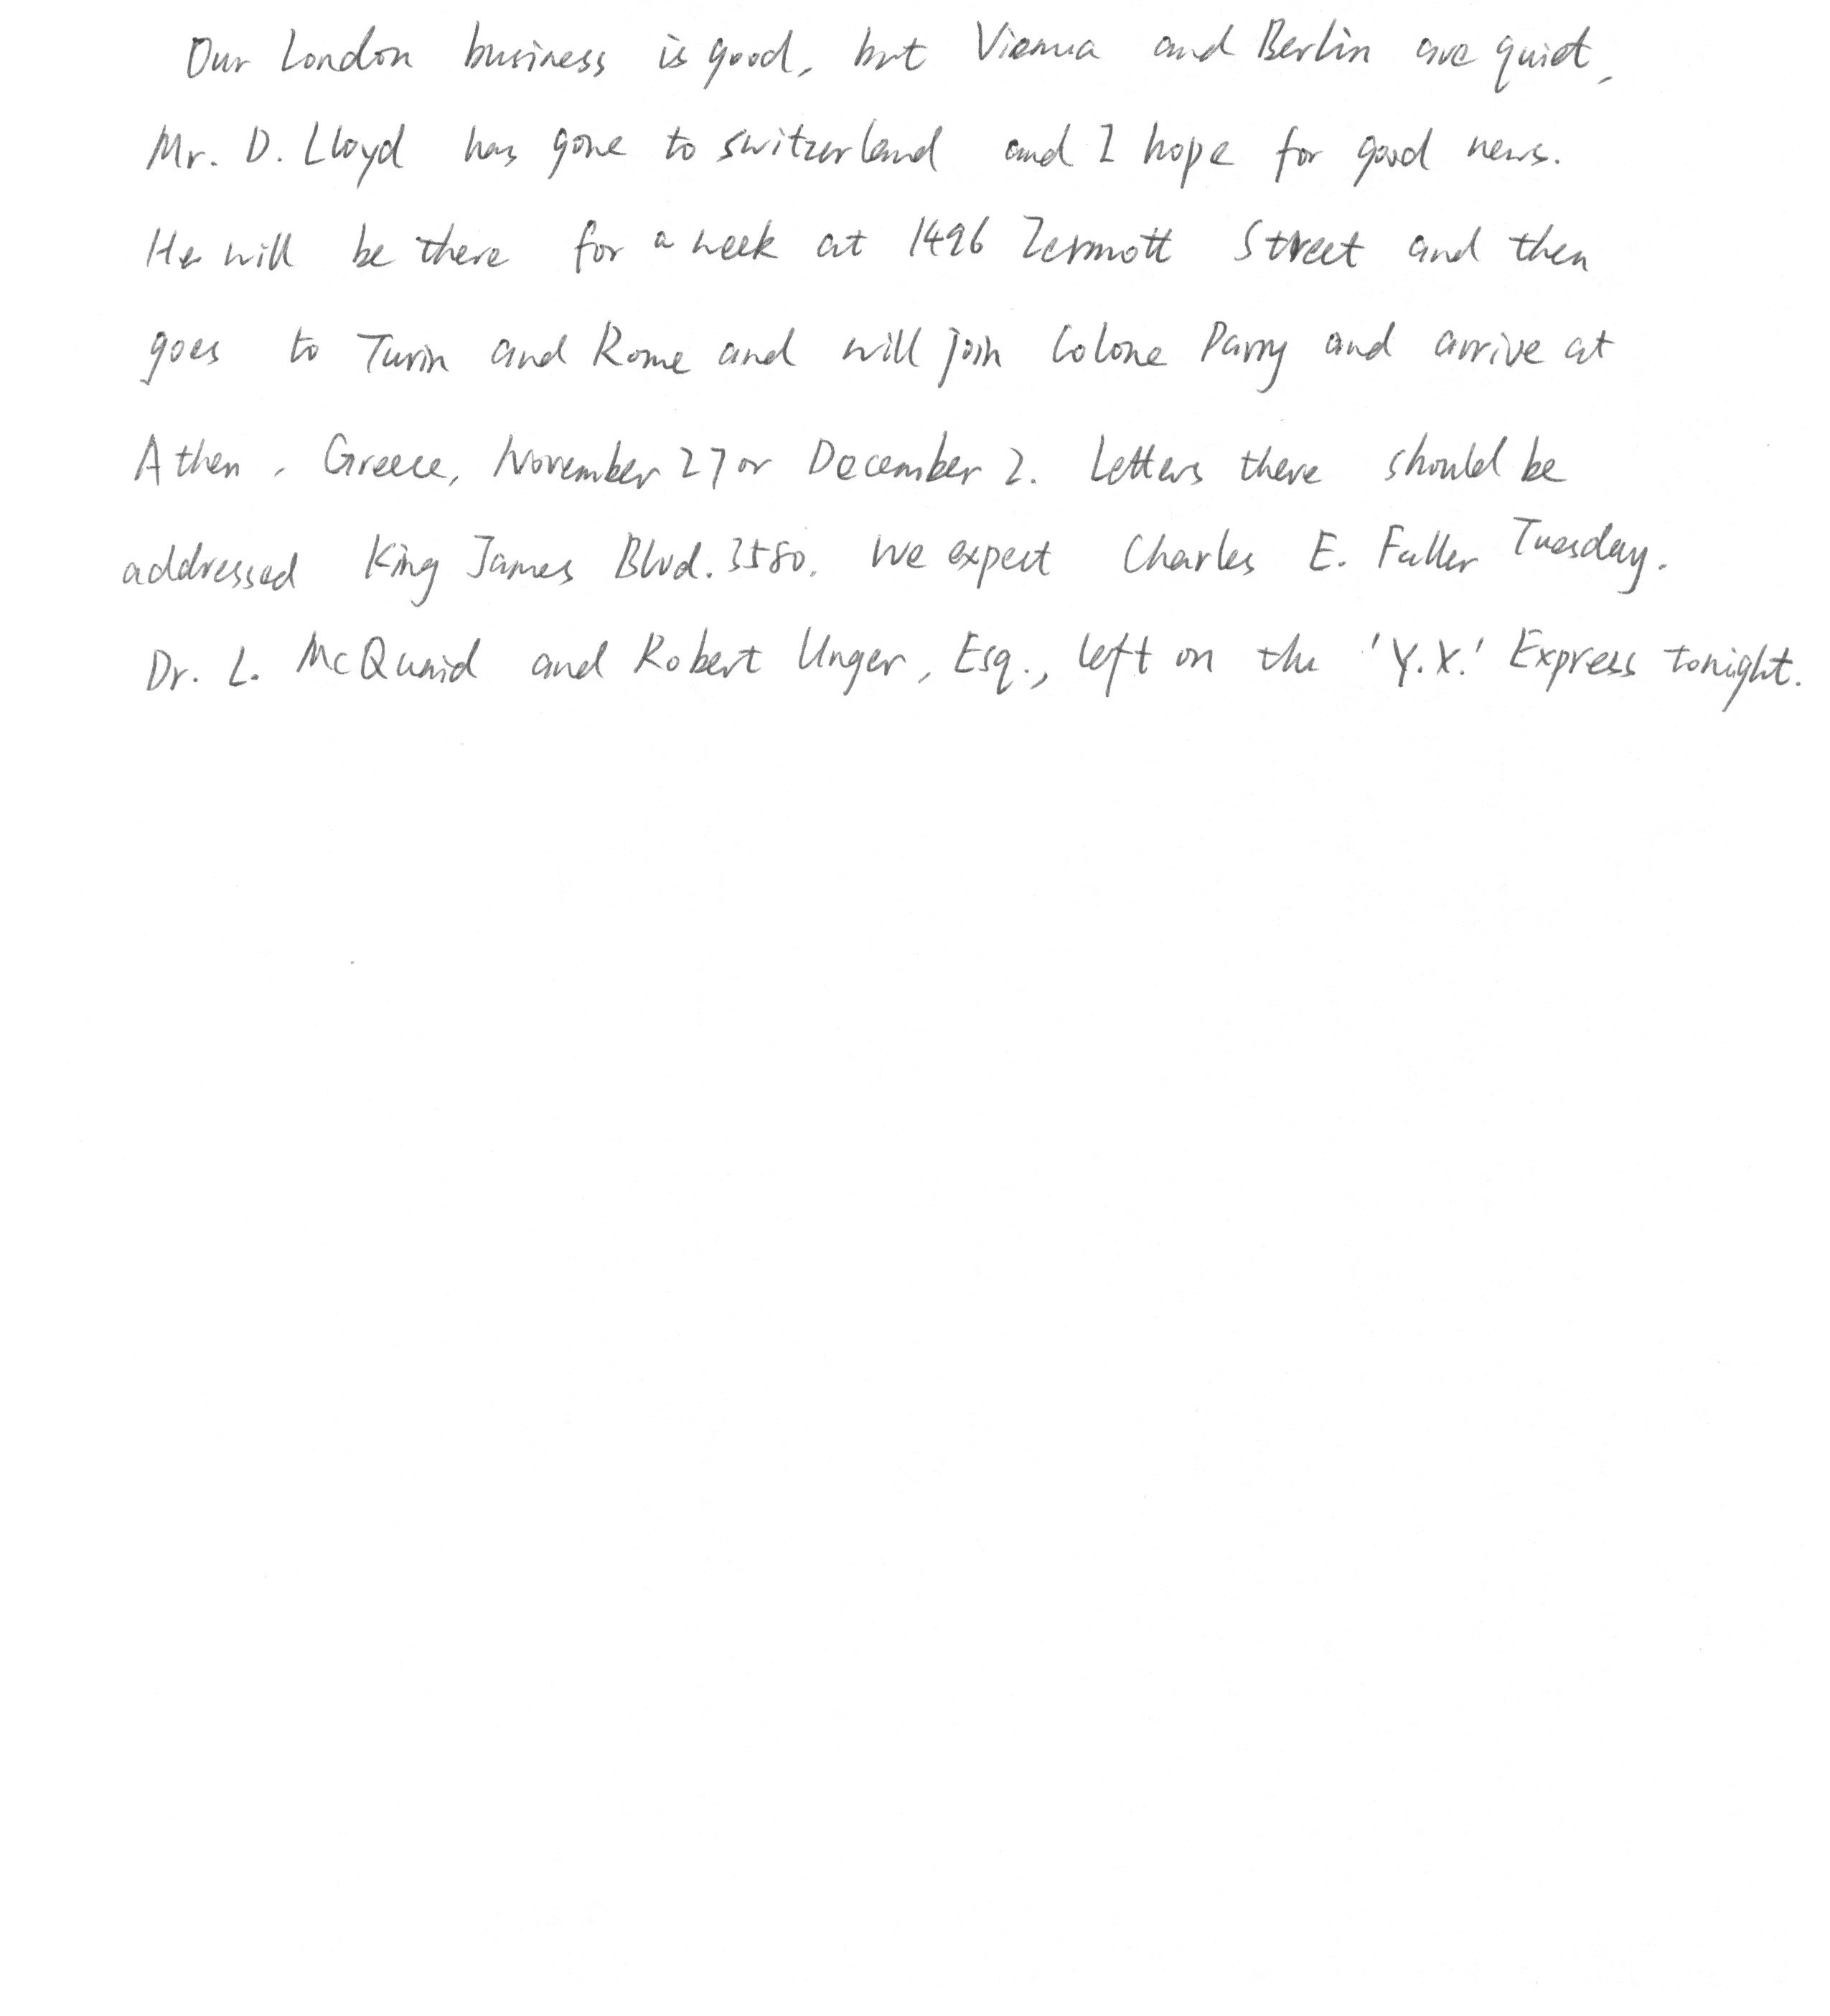 Our London business is good, but Vienna and Berlin are quiet,
Mr. D. Lloyd has gone to switzerland and I hope for good news.
He will be there for a week at 1496 Zermott Street and then
goes to Turin and Rome and will join Colone Parry and arrive at
Athen, Greece, November 27 or December 2. Letters there should be
addressed King James Blvd. 3580. We expect Charles E. Fuller Tuesday.
Dr. L. McQuaid and Robert Unger, Esq., left on the 'Y.X.' Express tonight.